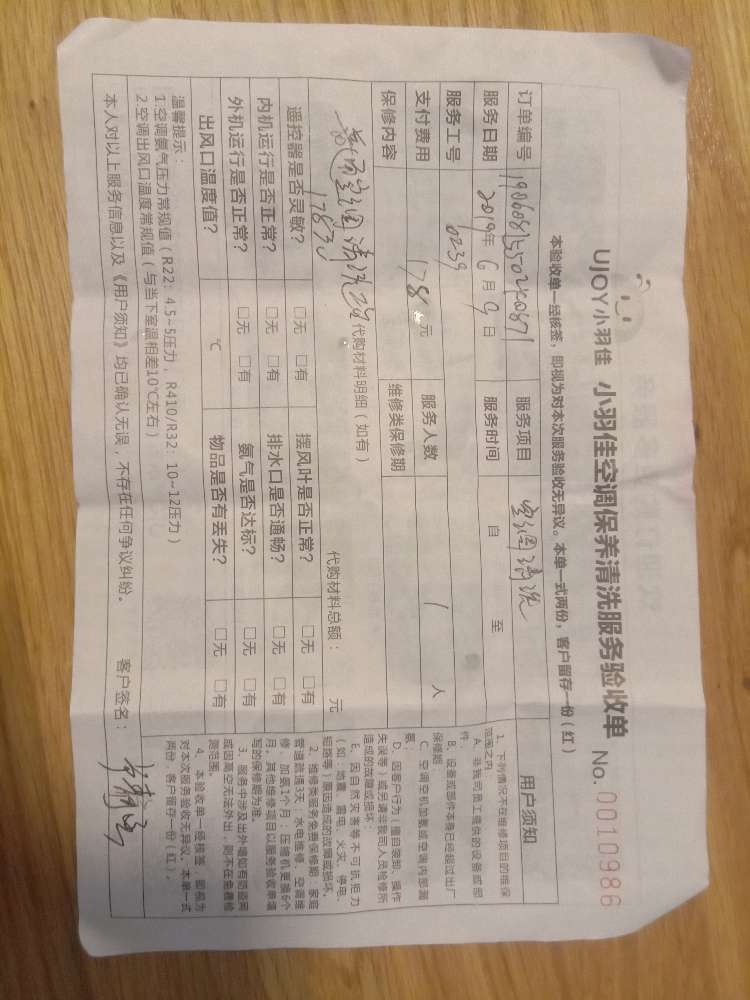 UJOY小羽佳 小羽佳空调保养清洗服务验收单 No. 0010986
本验收单一经核签，即视为对本次服务验收无异议。本单一式两份，客户留存一份（红）
订单编号 服务项目 空调清洗
服务日期 2019年 6月 9日 服务时间 自 至
服务工号 0239
支付费用 178 元 服务人数 1 人
保修内容 维修类保修期
空调清洗 代购材料明细（如有）
178元 代购材料总额： 元
遥控器是否灵敏？ □无 □有 摆风叶是否正常？ □无 □有
内机运行是否正常？ □无 □有 排水口是否通畅？ □无 □有
外机运行是否正常？ □无 □有 氨气是否达标？ □无 □有
出风口温度值？ ℃ 物品是否有丢失？ □无 □有
温馨提示：
1.空调氨气压力常规值（R22：4.5~5压力，R410/R32：10~12压力）
2.空调出风口温度常规值（与当下室温相差10℃左右）
本人对以上服务信息以及《用户须知》均已确认无误，不存在任何争议纠纷。 客户签名：
用户须知
1、下列情况不在维修项目的维保
范围之内
A、非我司员工提供的设备或部
件；
B、设备或部件本身已经超过出厂
保修期；
C、空调空机加氨或空调内部漏
氨；
D、因客户行为（擅自装卸、操作
失误等）或另请非我司人员检修所
造成的故障或损坏；
E、因自然灾害等不可抗拒力
（如：地震、雷电、火灾、停电、
短路等）原因造成的故障或损坏。
2、维修类服务免费保修期：家庭
管道疏通3天；水电维修、空调维
修、加氨1个月；压缩机更换6个
月。其他维修项目以服务验收单填
写的保修期为准。
3、服务中涉及出外墙如有防盗网
或因高空无法外出，则不在免费检
测范围。
4、本验收单一经核签，即视为
对本次服务验收无异议。本单一式
两份，客户留存一份（红）。